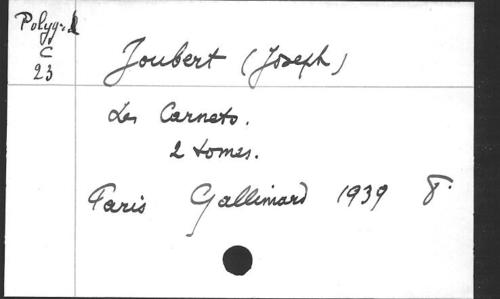 Polygr.
C
23
Joubert (Joseph)
Les Carnets.
2 tomes.
Paris Gallimard 1939 8°.